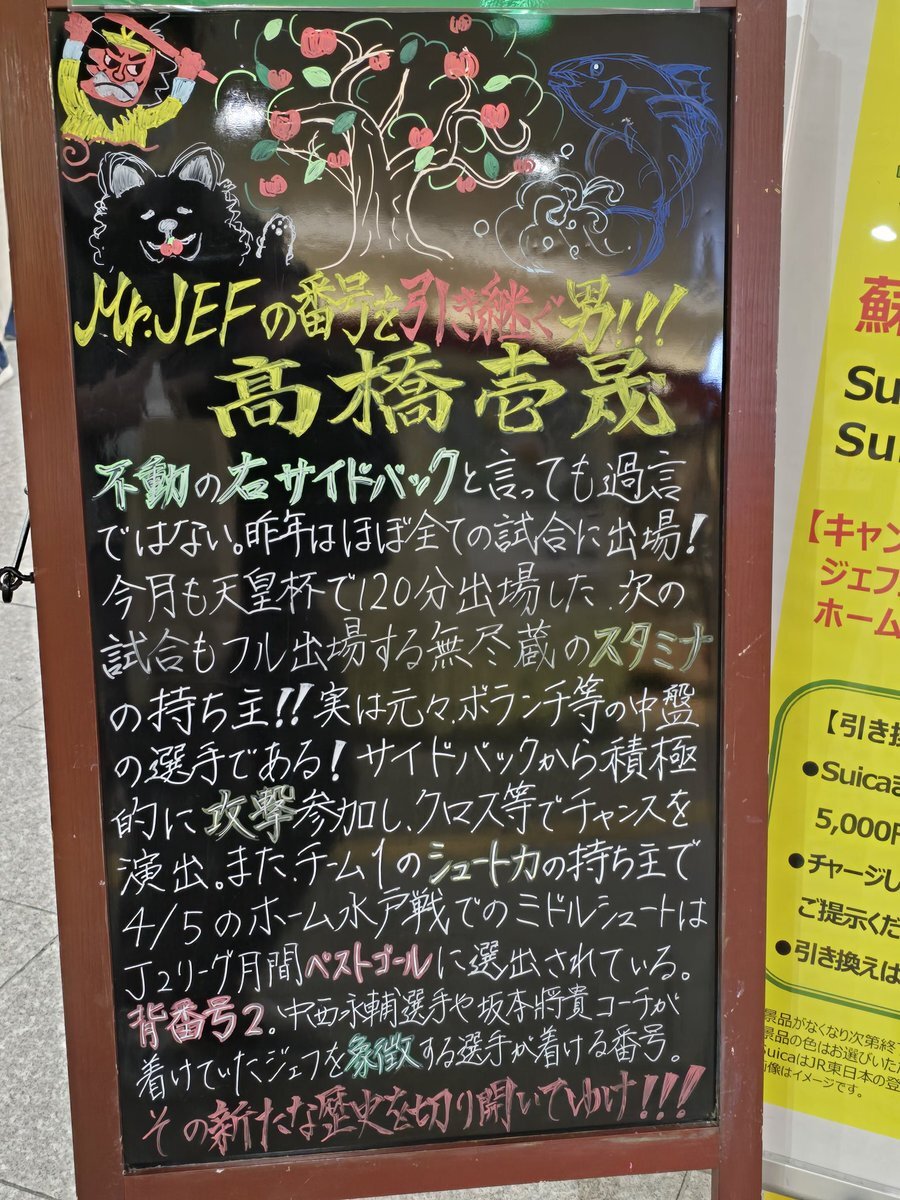 Mr.JEFの番号を引き継ぐ男!!!
髙橋壱晟
不動の右サイドバックと言っても過言
ではない。昨年はほぼ全ての試合に出場!
今月も天皇杯で120分出場した、次の
試合もフル出場する無尽蔵のスタミナ
の持ち主!!実は元々、ボランチ等の中盤
の選手である!サイドバックから積極
的に攻撃参加し、クロス等でチャンスを
演出。また、チーム1のシュート力の持ち主で
4/5のホーム水戸戦でのミドルシュートは
J2リーグ月間ベストゴールに選出されている。
背番号2。中西永輔選手や坂本將貴コーチが
着けていたジェフを象徴する選手が着ける番号。
その新たな歴史を切り開いてゆけ!!!
蘇
Su
Su
【キャン
ジェフ
ホーム
【引き換
●Suica
5,000
●チャージし
ご提示くだ
●引き換えは
景品がなくなり次第終
景品の色はお選びいた
SuicaはJR東日本の登
画像はイメージです。